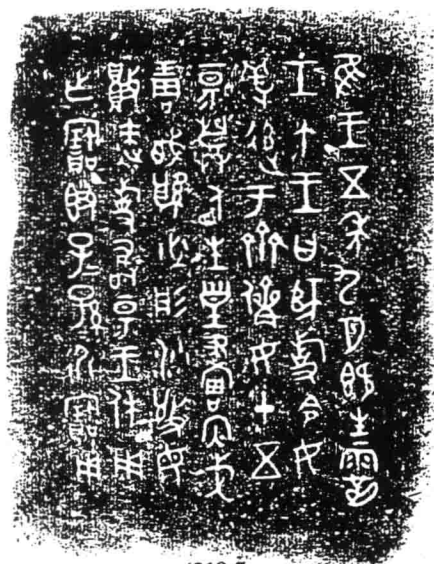 隹王五年九月既生霸
壬午王曰師旋令女
羞追于齊儕女十五
昜登盾生皇畫内戈
琱㦸厚必彤沙敬母
敗速旋敢昜王休用
乍寶簋子子孫孫永寶用